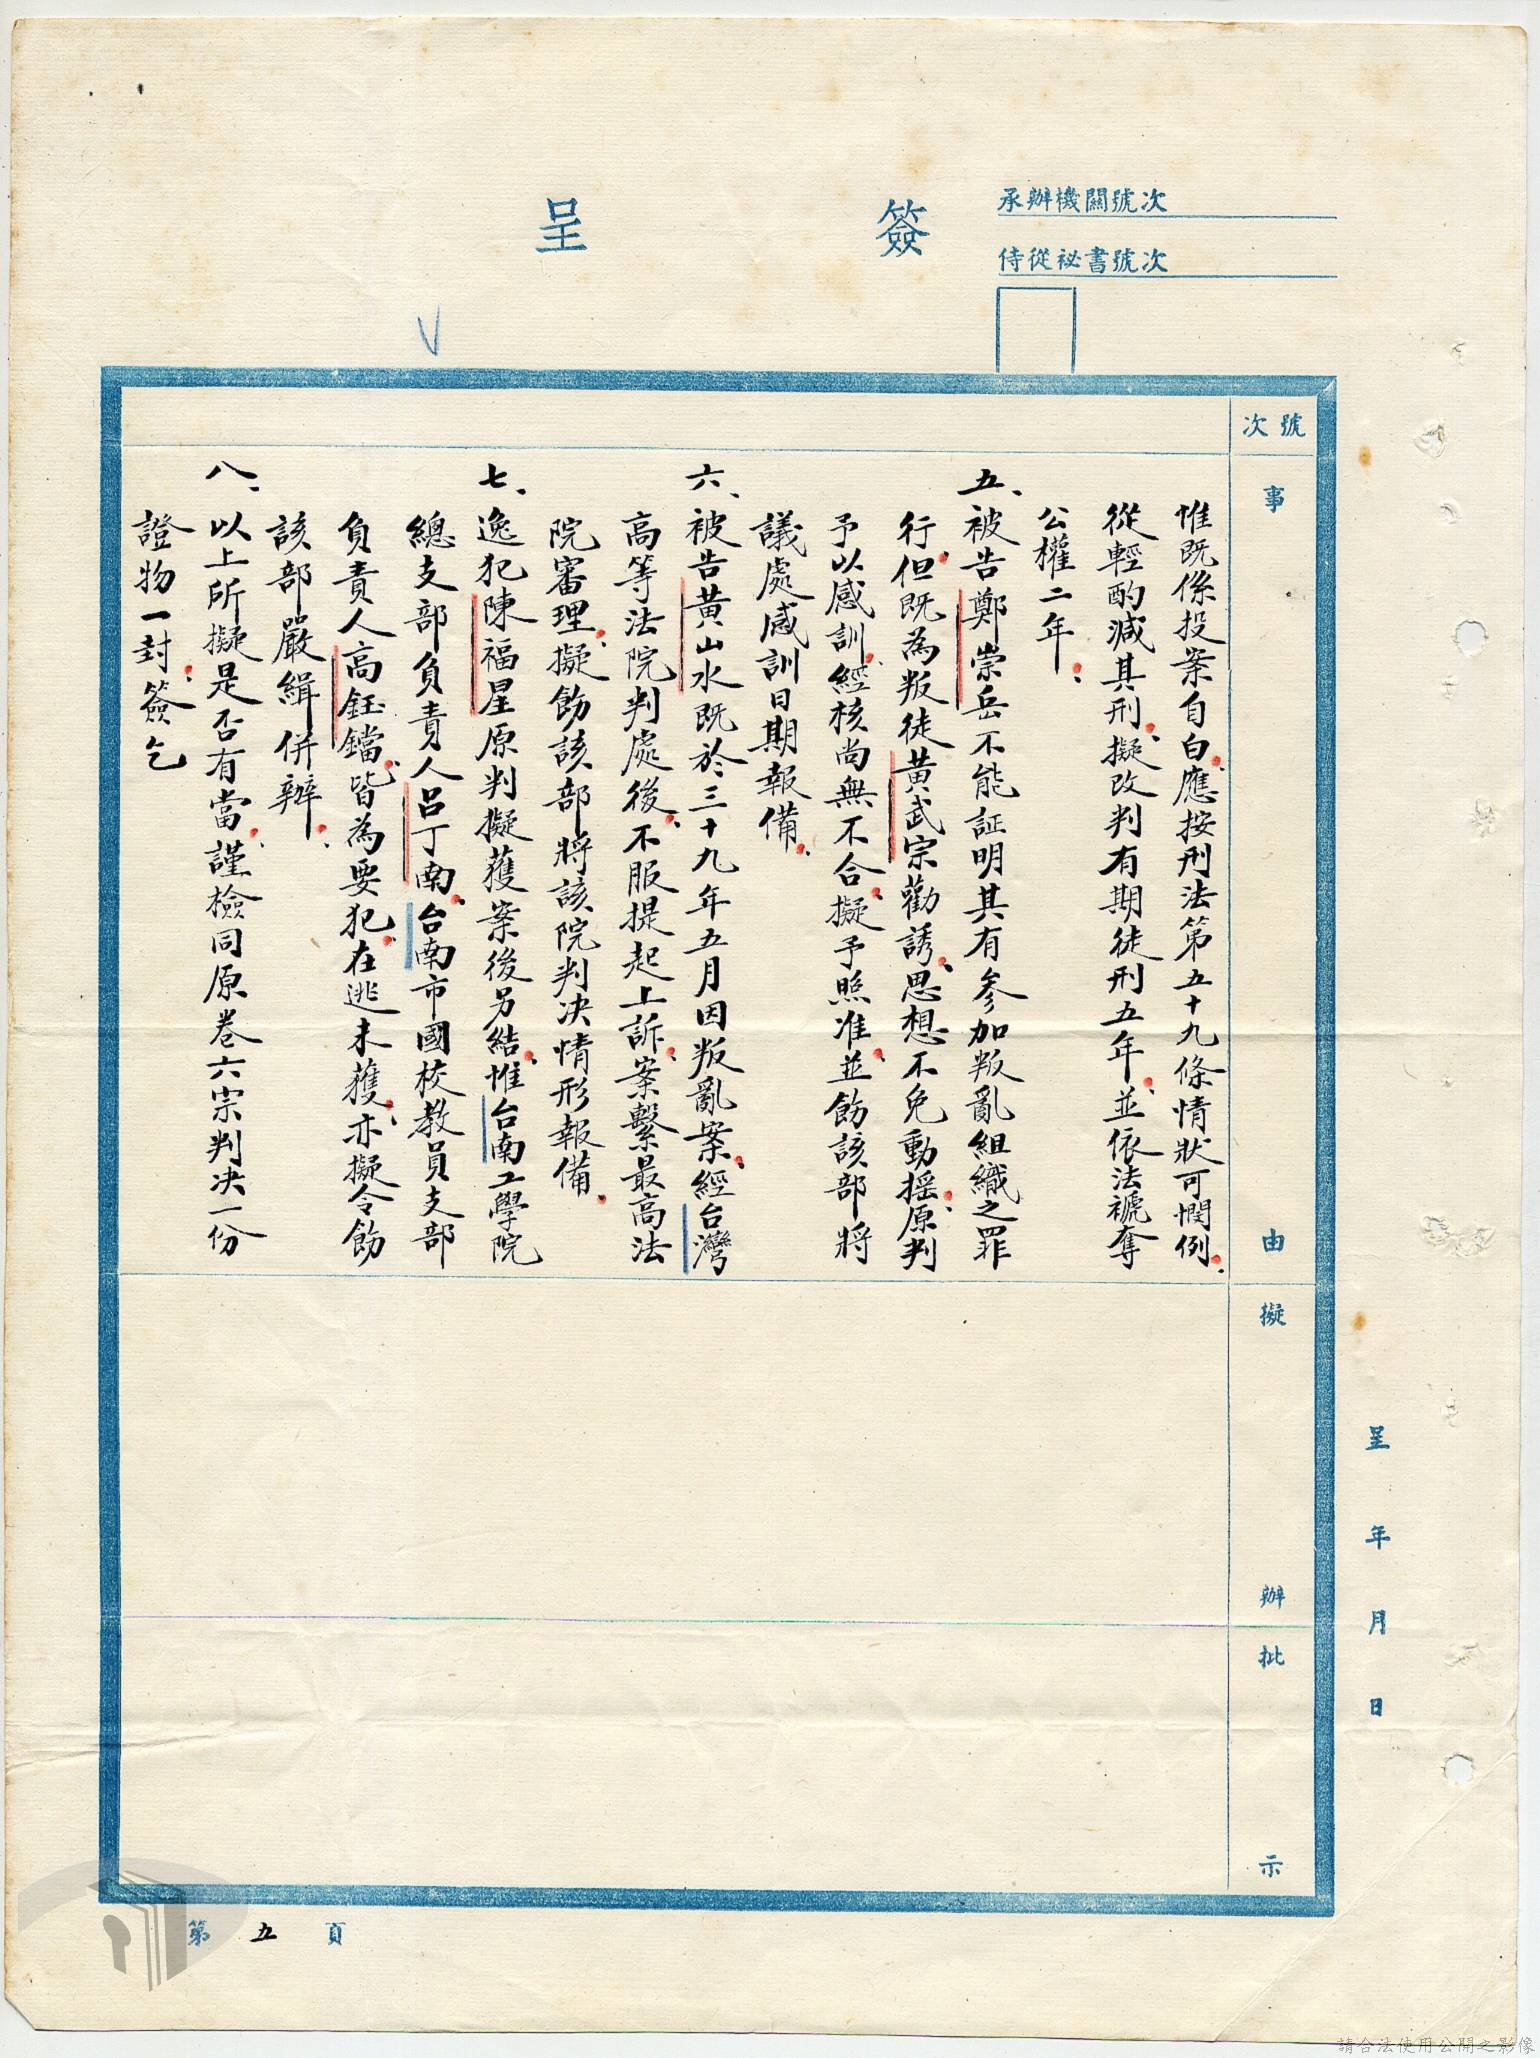 簽呈
承辦機關號次
侍從祕書號次
號次
事由
擬辦
批示
呈 年 月 日
惟既係投案自白應按刑法第五十九條情狀可憫例
從輕酌減其刑擬改判有期徒刑五年並依法褫奪
公權二年
五、被告鄭崇岳不能証明其有參加叛亂組織之罪
行但既為叛徒黃武宗勸誘思想不免動搖原判
予以感訓經核尚無不合擬予照准並飭該部將
議處感訓日期報備
六、被告黃山水既於三十九年五月因叛亂案經台灣
高等法院判處後不服提起上訴案繫最高法
院審理擬飭該部將該院判決情形報備
七、逸犯陳福星原判擬獲案後另結惟台南工學院
總支部負責人呂丁南台南市國校教員支部
負責人高鈺鐺皆為要犯在逃未獲亦擬令飭
該部嚴緝併辦
八、以上所擬是否有當謹檢同原卷六宗判決一份
證物一封簽乞
第五頁
請合法使用公開之影像